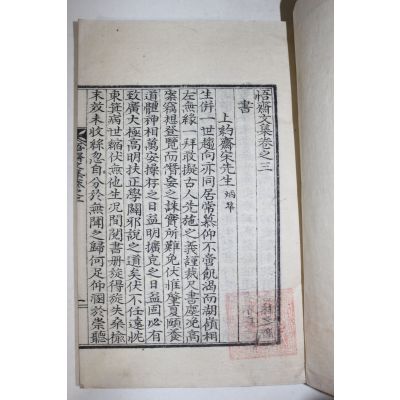 悟齋文集卷之三
書
上約齋宋先生 炳華
生併一世趨向亦同居常慕仰不啻飢渴而湖嶺相
左無緣一拜敢擬古人先施之義謹裁尺書塵浼高
案竊想登覽而僭妄之誅實所難免伏惟肇夏頤養
道體神相萬安操存之日益明擴充之日益固必有
致廣大極高明扶正學闢邪說之道矣伏不任遠忱
東箕病世縮伏無他生況間閱書册旋得旋失桑榆
未效未收絲忽自分於無聞之歸何足仰溷於崇聽